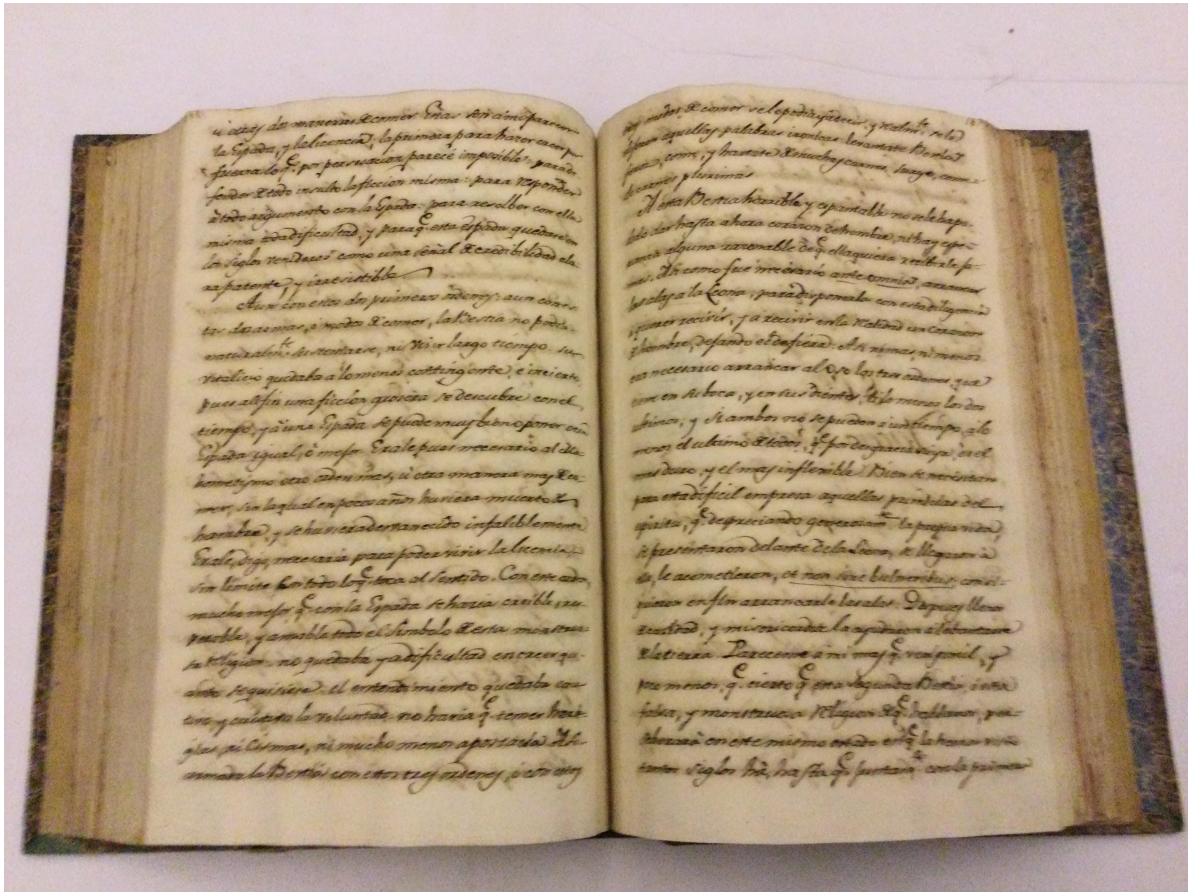 u otras dos maneras de comer. Estas son a mi parecer
la Espada, y la licencia; la primera para hacer creer por
fuerza lo q.e por persuacion parece imposible: para de-
fender de todo insulto la ficcion misma: para responder
a todo argumento con la Espada: para resolber con ella
misma toda dificultad, y para q.e esta espada quedase en
los siglos venideros como una señal de credibilidad cla-
ra patente, y irresistible.
Aun con estos dos primeros ordenes: aun con es-
tas dos armas, o modos de comer, la Bestia no podia
naturalm.te sustentarse, ni vivir largo tiempo. Su
vitalicio quedaba a lo menos contingente, e incierto,
pues al fin una ficcion grosera se descubre con el
tiempo, y a una Espada se puede muy bien oponer otra
Espada igual, ó mejor. Erale pues necesario al Ma-
hometismo otro orden mas, u otra manera mas de co-
mer, sin la qual en pocos años huviera muerto de
hambre, y se huviera desvanecido infaliblemente.
Erale, digo, necesaria para poder vivir la licencia
sin limite en todo lo q.e toca al sentido. Con este orden,
mucho mejor q.e con la Espada se hacia creible, res-
petable, y amable todo el simbolo de esta monstruo-
sa Religion: no quedaba ya dificultad en creer qu-
anto se quisiese: el entendimiento quedaba cau-
tivo, y cautiva la voluntad: no havia q.e temer here-
gias, ni Cismas, ni mucho menos apostacia. Asi
armada la Bestia con estos tres ordenes, ó con estos
tres modos de comer se le podia ya decir, y realm.te se le
dijeron aquellas palabras ironicas: levantate Bestia
come, y hartate de muchas carnes, surge, come-
de carnes plurimas.
A esta Bestia horrible, y espantable no se le ha po-
dido dar hasta ahora corazon de hombre, ni hay espe-
ranza alguna razonable de q.e ella quiera recibirle ja-
mas. Asi como fue necesario ante omnia, arrancar
las alas a la Leona, para disponerla con esta diligencia
a querer recivir, y a recivir en la realidad un corazon
de hombre, dejando el de fiera: Asi ni mas, ni menos
era necesario arrancar al Oso los tres ordenes, que
tiene en su boca, y en sus dientes; ó a lo menos los dos
ultimos, y si ambos no se pueden a un tiempo, a lo
menos el ultimo de todos, q.e por desgracia suya, es el
mas duro, y el mas inflexible. Bien se necesitan
para esta dificil empresa aquellas principes del
espiritu, q.e despreciando generosam.te la propia vida,
se presentaron delante de la Leona, se llegaron á
ella, le acometieron, et non sine vulneribus, consi-
guieron en fin arrancarle las alas. Despues llenos
de caridad, y misericordia la ayudaron a lebantarse
de la tierra. Pareceme a mi mas q.e verosimil, y
poco menos q.e cierto q.e esta segunda Bestia, ó esta
falsa, y monstruosa Religion de q.e hablamos, per-
severará en este mismo estado en q.e la hemos visto
tantos siglos há, hasta q.e juntam.te con la primera